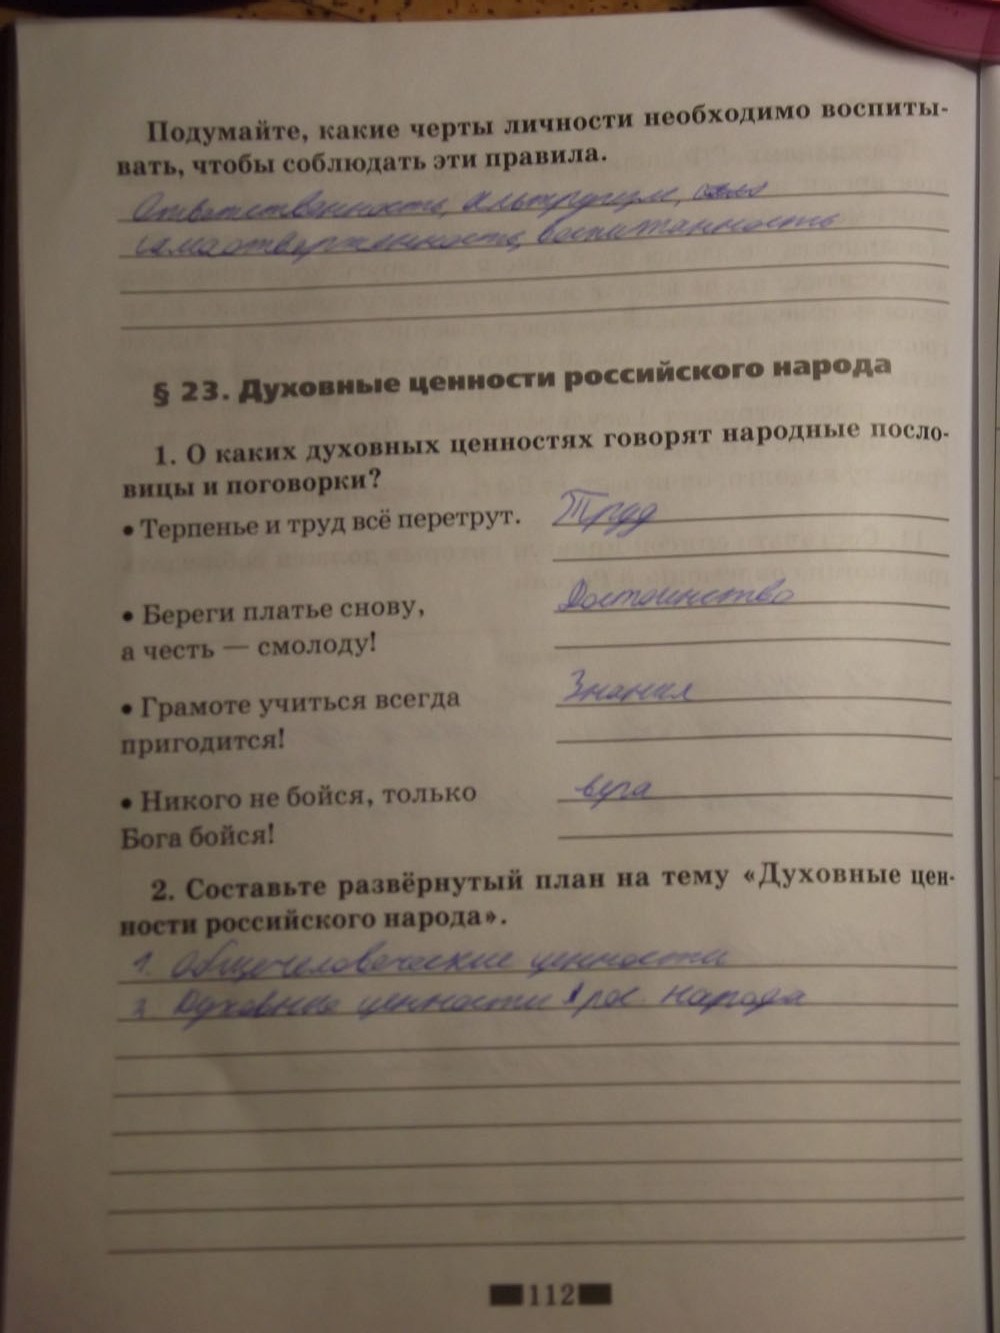 Подумайте, какие черты личности необходимо воспиты-
вать, чтобы соблюдать эти правила.
Ответственность, альтруизм,
самоотверженность, воспитанность
§ 23. Духовные ценности российского народа
1. О каких духовных ценностях говорят народные посло-
вицы и поговорки?
• Терпенье и труд всё перетрут. Труд
• Береги платье снову, Достоинство
а честь — смолоду!
• Грамоте учиться всегда Знания
пригодится!
• Никого не бойся, только вера
Бога бойся!
2. Составьте развёрнутый план на тему «Духовные цен-
ности российского народа».
1. Общечеловеческие ценности
Духовные ценности рос. народа
112